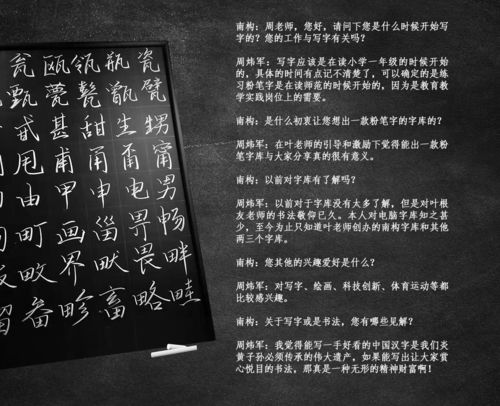 瓮 瓯 瓴 瓶 瓷
甄 甍 甏 甑 甓
甙 甚 甜 生 甥
甩 甫 甬 甭 甯
由 甲 申 电 男
町 画 甾 畀 畅
畋 界 畎 畏 畔
留 畚 畛 畜 略 畦
南构：周老师，您好，请问下您是什么时候开始写
字的？您的工作与写字有关吗？
周炜军：写字应该是在读小学一年级的时候开始
的，具体的时间有点记不清楚了，可以确定的是练
习粉笔字是在读师范的时候开始的，因为是教育教
学实践岗位上的需要。
南构：是什么初衷让您想出一款粉笔字的字库的？
周炜军：在叶老师的引导和激励下觉得能出一款粉
笔字库与大家分享真的很有意义。
南构：以前对字库有了解吗？
周炜军：以前对于字库没有太多了解，但是对叶根
友老师的书法敬仰已久。本人对电脑字库知之甚
少，至今为止只知道叶老师创办的南构字库和其他
两三个字库。
南构：您其他的兴趣爱好是什么？
周炜军：对写字、绘画、科技创新、体育运动等都
比较感兴趣。
南构：关于写字或是书法，您有哪些见解？
周炜军：我觉得能写一手好看的中国汉字是我们炎
黄子孙必须传承的伟大遗产，如果能写出让大家赏
心悦目的书法，那真是一种无形的精神财富啊！